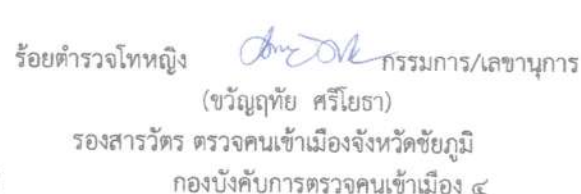 ร้อยตำรวจโทหญิง กรรมการ/เลขานุการ
(ขวัญฤทัย ศรีโยธา)
รองสารวัตร ตรวจคนเข้าเมืองจังหวัดชัยภูมิ
กองบังคับการตรวจคนเข้าเมือง ๔